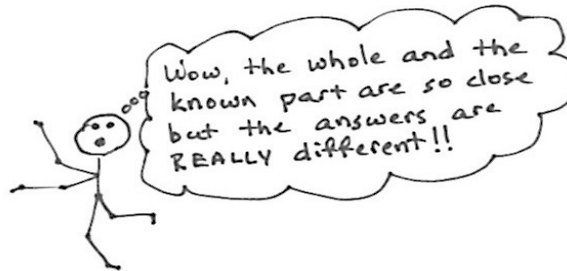 Wow, the whole and the
known part are so close
but the answers are
REALLY different!!